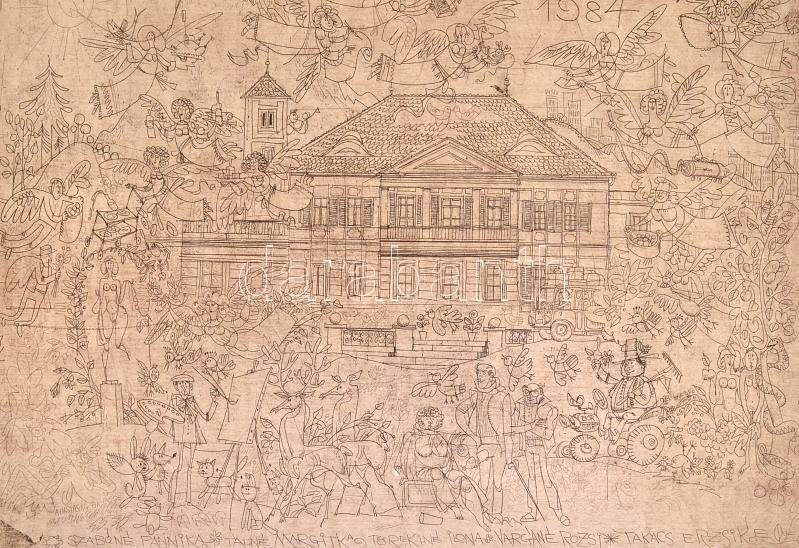 1984
darabanth
SZABÓNÉ FANNIKA TÁLNÉ MARGITKA TÖRÖKINÉ ILONA VARGÁNÉ ROZSI TAKÁCS ERZSIKE